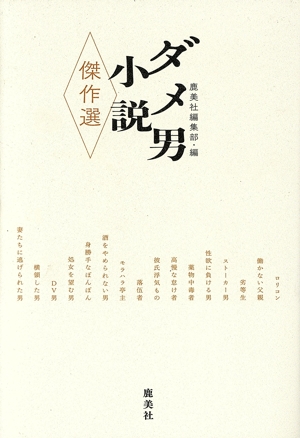 ダメ男
小説
傑作選
鹿美社編集部・編
ロリコン
働かない父親
劣等生
ストーカー男
性欲に負ける男
薬物中毒者
高慢な怠け者
彼氏浮気もの
落伍者
モラハラ亭主
酒をやめられない男
身勝手なぼんぼん
処女を望む男
DV男
横領した男
妻たちに逃げられた男
鹿美社